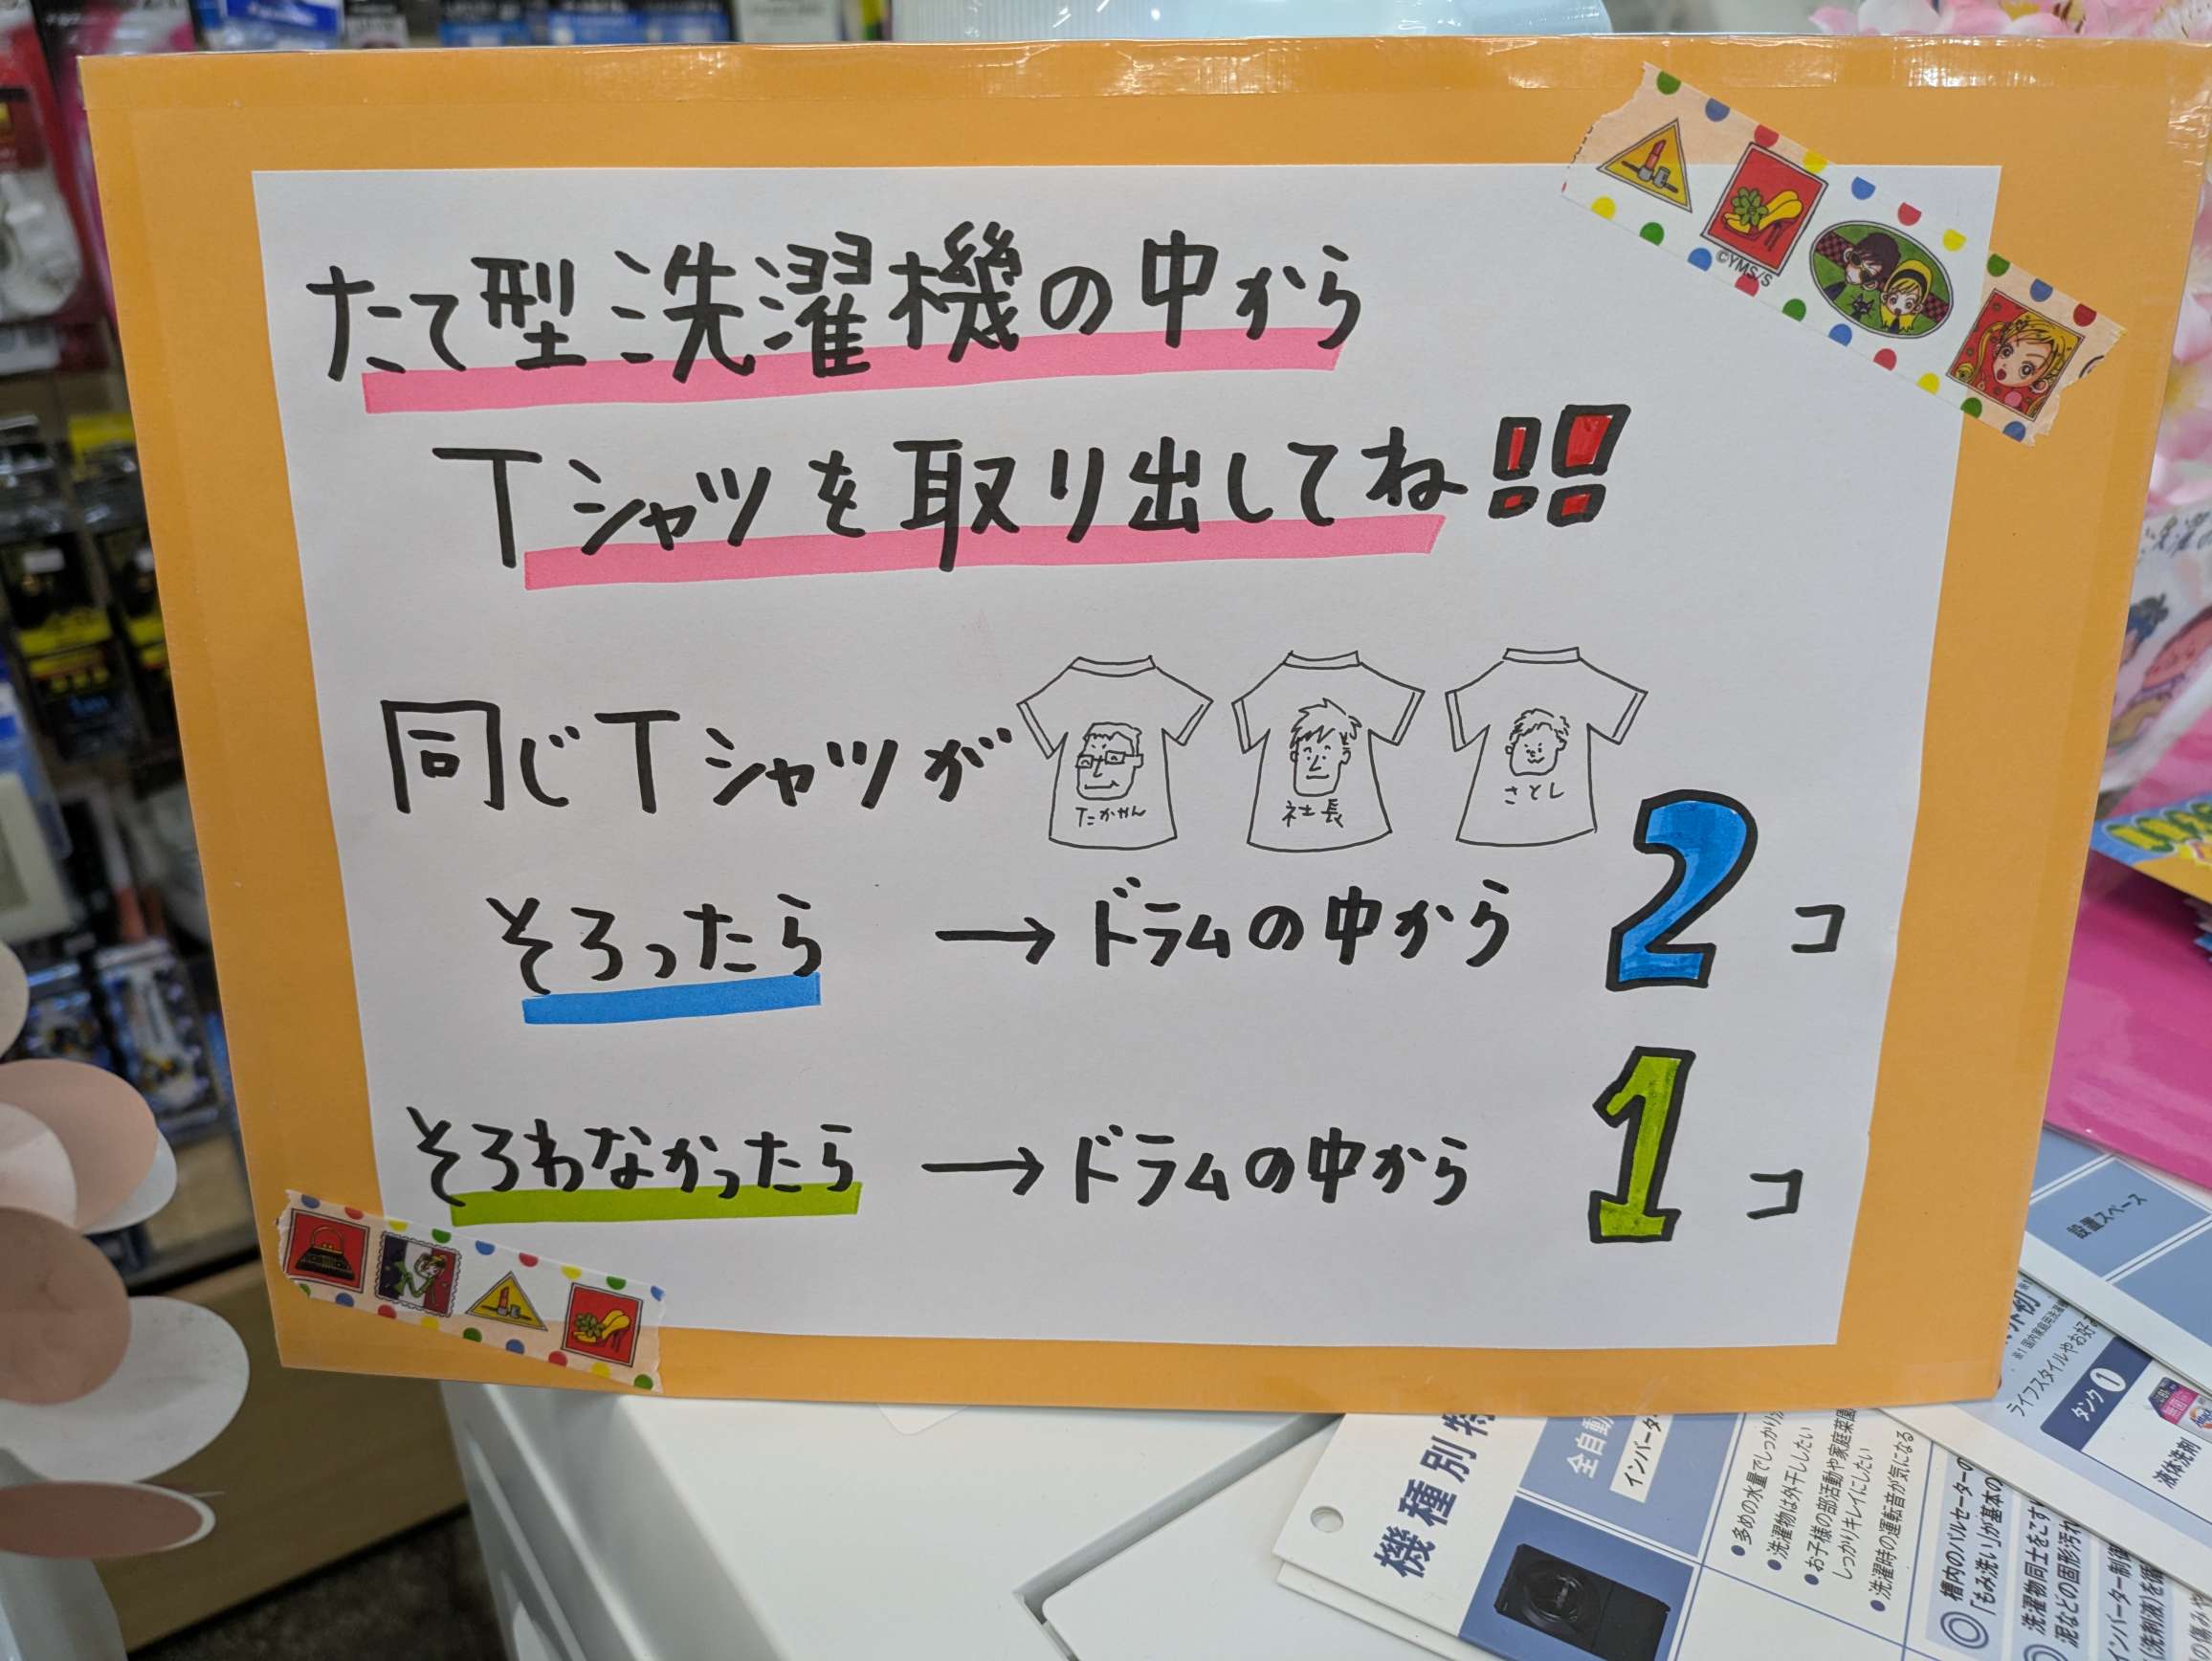 たて型洗濯機の中から
Tシャツを取り出してね!!
©YMS/S
同じTシャツが
たかやん
社長
さとし
そろったら → ドラムの中から 2 コ
そろわなかったら → ドラムの中から 1 コ
設置スペース
ライフスタイルやお好
タンク①
液体洗剤
機種別特
全自動
インバータ
●多めの水量でしっかり
●洗濯物は外干ししたい
●お子様の部活動や家庭菜園
しっかりキレイにしたい
●洗濯時の運転音が気になる
◎槽内のパルセーターの
「もみ洗い」が基本の
洗濯物同士をこす
泥などの固形汚れ
インバーター制御
(洗剤液)を